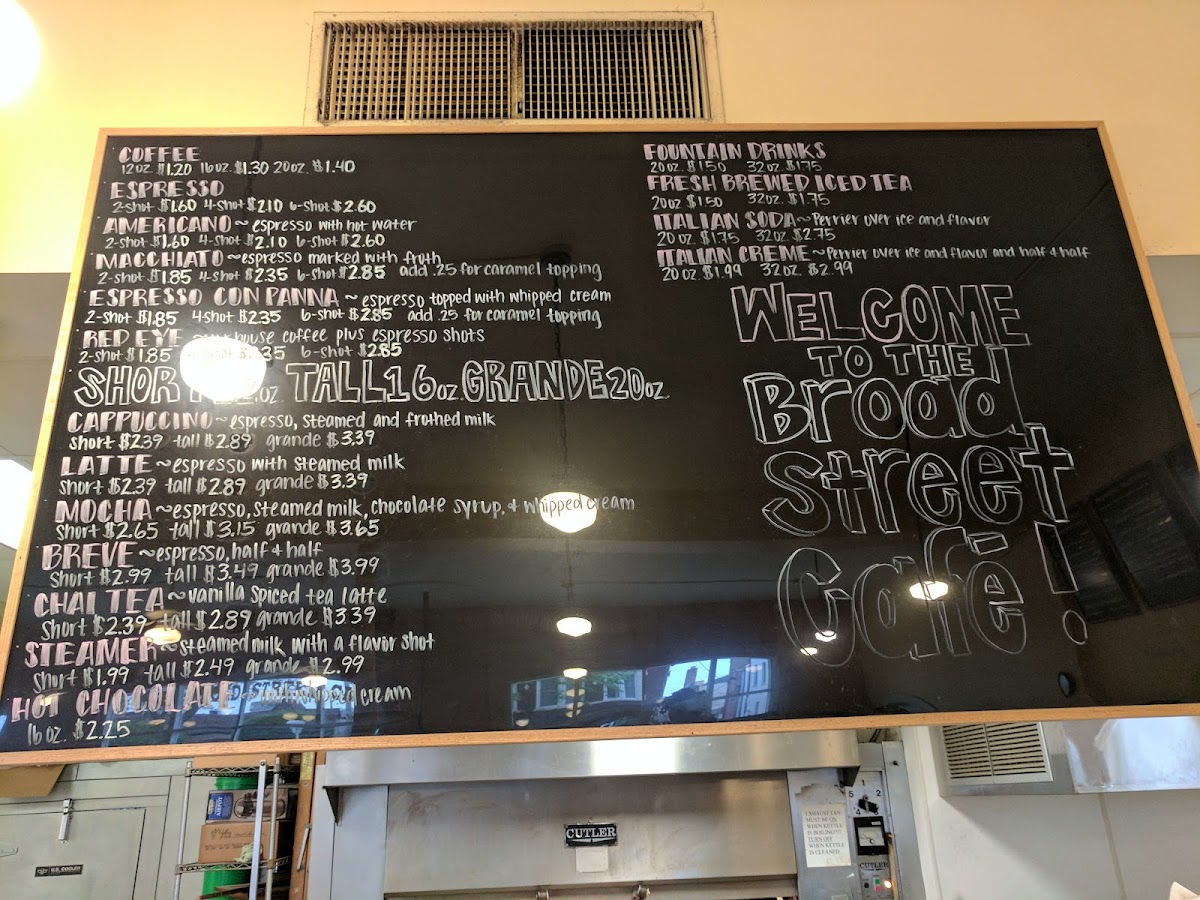 COFFEE
12oz. $1.20 16oz. $1.30 20oz. $1.40
ESPRESSO
2-shot $1.60 4-shot $2.10 6-shot $2.60
AMERICANO ~ espresso with hot water
2-shot $1.60 4-shot $2.10 6-shot $2.60
MACCHIATO ~ espresso marked with froth
2-shot $1.85 4-shot $2.35 6-shot $2.85 add .25 for caramel topping
ESPRESSO CON PANNA ~ espresso topped with whipped cream
2-shot $1.85 4-shot $2.35 6-shot $2.85 add .25 for caramel topping
RED EYE ~ house coffee plus espresso shots
2-shot $1.85 6-shot $2.85
TALL 16oz. GRANDE 20oz.
CAPPUCCINO ~ espresso, steamed and frothed milk
short $2.39 tall $2.89 grande $3.39
LATTE ~ espresso with steamed milk
short $2.39 tall $2.89 grande $3.39
MOCHA ~ espresso, steamed milk, chocolate syrup, & whipped cream
short $2.65 tall $3.15 grande $3.65
BREVE ~ espresso, half & half
short $2.99 tall $3.49 grande $3.99
CHAI TEA ~ vanilla spiced tea latte
short $2.39 tall $2.89 grande $3.39
STEAMER ~ steamed milk with a flavor shot
short $1.99 tall $2.49 grande $2.99
HOT CHOCOLATE ~ whipped cream
16oz. $2.25
FOUNTAIN DRINKS
20oz. $1.50 32oz. $1.75
FRESH BREWED ICED TEA
20oz $1.50 32oz. $1.75
ITALIAN SODA ~ Perrier over ice and flavor
20oz. $1.75 32oz. $2.75
ITALIAN CREME ~ Perrier over ice and flavor and half & half
20oz $1.99 32oz. $2.99
WELCOME
TO THE
Broad
Street
Café!
CUTLER
EXHAUST FAN
MUST BE ON
WHEN KETTLE
IS BOILING!!!
TURN OFF
WHEN KETTLE
IS CLEANED
CUTLER